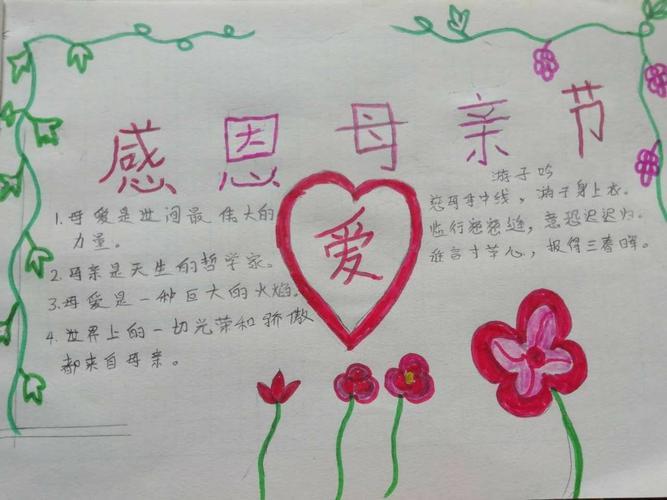 感恩母亲节
1. 母爱是世间最伟大的
力量。
2. 母亲是天生的哲学家。
3. 母爱是一种巨大的火焰。
4. 世界上的一切光荣和骄傲
都来自母亲。
爱
游子吟
慈母手中线，游子身上衣。
临行密密缝，意恐迟迟归。
谁言寸草心，报得三春晖。